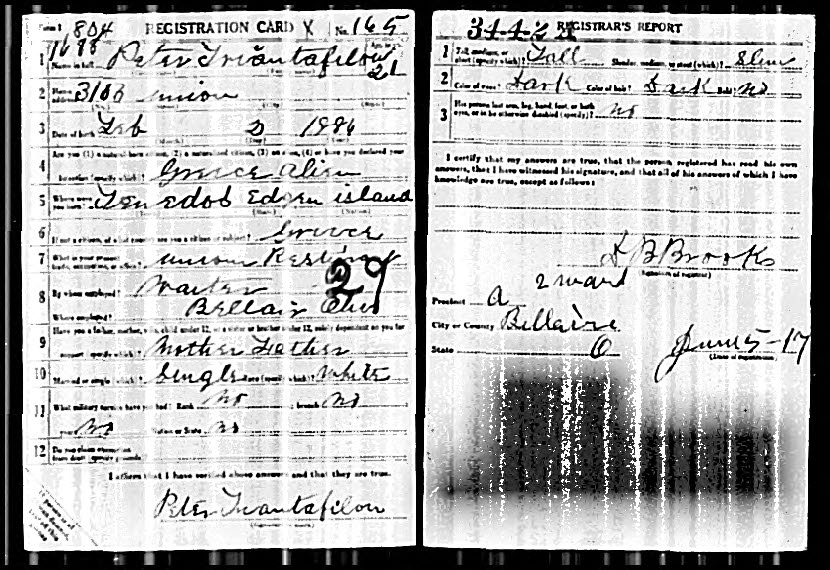 Form 1 804 REGISTRATION CARD X No. 165
1688
1 Name in full Peter Triantafelou Age, in yrs. 21
2 Home address 3106 union
3 Date of birth Feb 2 1986
(Month) (Day) (Year)
Are you (1) a natural-born citizen, (2) a naturalized citizen, (3) an alien, (4) or have you declared your
4 intention (specify which)? Greece Alien
5 Where were you born? Tenedos Edgen island
(Town) (State) (Nation)
6 If not a citizen, of what country are you a citizen or subject? Greece
7 What is your present trade, occupation, or office? union
29
8 By whom employed? Waiter
Where employed? Bellair Ohio
Have you a father, mother, wife, child under 12, or a sister or brother under 12, solely dependent on you for
9 support (specify which)? Mother Father
10 Married or single (which)? Single Race (specify which)? White
11 What military service have you had? Rank no ; branch no
years no Nation or State no
12 Do you claim exemption from draft (specify grounds)?
I affirm that I have verified above answers and that they are true.
Peter Triantafelou
34-4-2 A REGISTRAR'S REPORT
1 Tall, medium, or short (specify which)? Tall Slender, medium, or stout (which)? Slim
2 Color of eyes? Dark Color of hair? Dark Bald? no
3 Has person lost arm, leg, hand, foot, or both eyes, or is he otherwise disabled (specify)? no
I certify that my answers are true, that the person registered has read his own
answers, that I have witnessed his signature, and that all of his answers of which I have
knowledge are true, except as follows:
D B Brooks
(Signature of registrar)
Precinct A 2 ward
City or County Bellaire
State O June 5-17
(Date of registration)